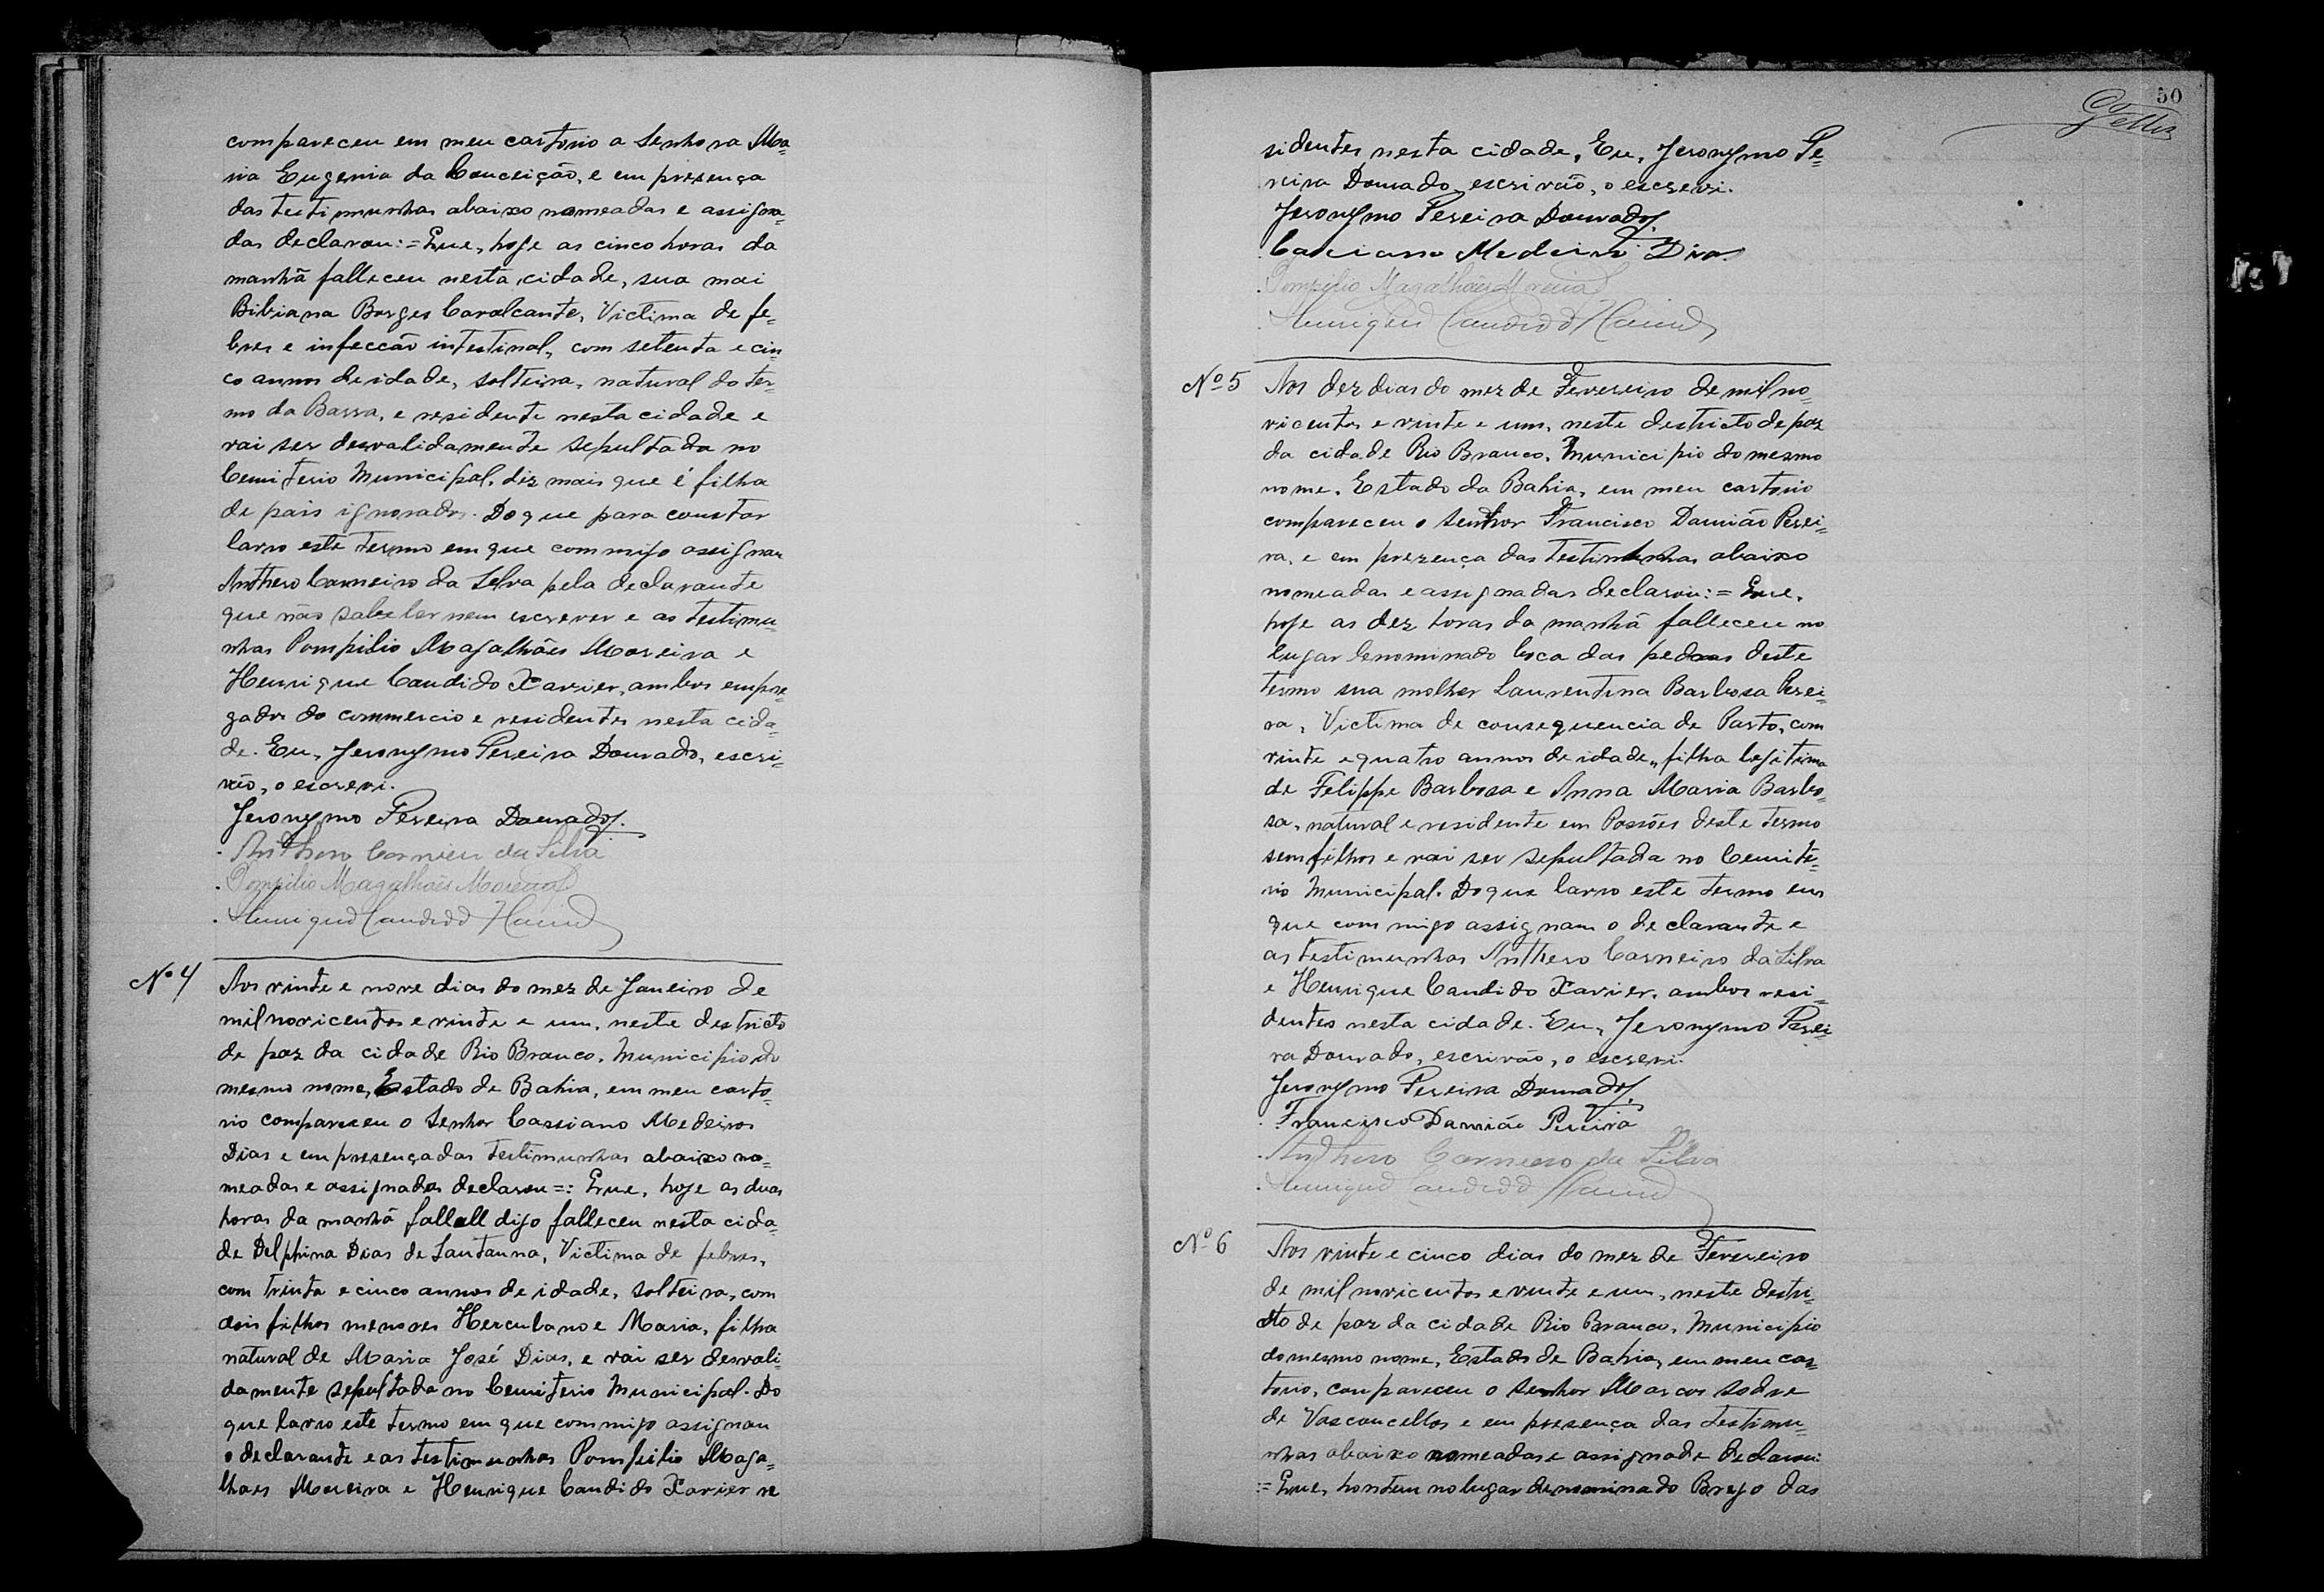 compareceu em meu cartorio a Senhora Ma=
ria Eugenia da Conceição, e em presença
das testimunhas abaixo nomeadas e assigna=
das declarou:= Que, hoje as cinco horas da
manhã falleceu nesta cidade, sua mai
Bibiana Borges Cavalcante, Victima de fe=
bres e infeccão intestinal, com setenta e cin=
co annos de idade, solteira, natural do ter=
mo da Barra, e residente nesta cidade e
vai ser desvalidamente sepultada no
Cemiterio Municipal, diz mais que é filha
de pais ignorados. Do que para constar
lavro este termo em que commigo assignam
Anthero Carneiro da Silva pela declarante
que não sabe ler nem escrever e as testimu=
nhas Pompilio Magalhães Moreira e
Henrique Candido Xavier, ambos empre=
gados do commercio e residentes nesta cida=
de. Eu, Jeronymo Pereira Dourado, escri=
vão, o escrevi.
Jeronymo Pereira Dourado.
Anthero Carneiro da Silva
Pompilio Magalhães Moreira
Henrique Candido Xavier
Nº 4
Aos vinte e nove dias do mez de Janeiro de
mil novicentos e vinte e um, neste destricto
de paz da cidade Rio Branco, Municipio do
mesmo nome, Estado de Bahia, em meu carto=
rio compareceu o Senhor Cassiano Medeiros
Dias e em presença das testimunhas abaixo no=
meadas e assignadas declarou=: Que, hoje as duas
horas da manhã fallall digo falleceu nesta cida=
de Delphina Dias de Santanna, Victima de febres,
com trinta e cinco annos de idade, solteira, com
dois filhos menores Herculano e Maria, filha
natural de Maria José Dias, e vai ser desvali=
damente sepultada no Cemiterio Municipal. Do
que lavro este termo em que commigo assignam
o declarante e as testimunhas Pompilio Maga=
lhaes Moreira e Henrique Candido Xavier re
50
sidentes nesta cidade, Eu, Jeronymo Pe=
reira Dourado, escrivão, o escrevi.
Jeronymo Pereira Dourado.
Cassiano Medeiros Dias
Pompilio Magalhães Moreira
Henrique Candido Xavier
Nº 5
Aos dez dias do mez de Fevereiro de mil no=
vicentos e vinte e um, neste destricto de paz
da cidade Rio Branco, Municipio do mesmo
nome, Estado da Bahia, em meu cartorio
compareceu o Senhor Francisco Damião Perei=
ra, e em prezença das testimunhas abaixo
nomeadas e assignadas declarou:= Que,
hoje as dez horas da manhã falleceu no
lugar denominado loca das pedras deste
termo sua molher Laurentina Barbosa Perei=
ra, Victima de consequencia de Parto, com
vinte e quatro annos de idade, filha legitima
de Felippe Barbosa e Anna Maria Barbo=
sa, natural e residente em Possões deste termo
sem filhos e vai ser sepultada no Cemite=
rio Municipal. Do que lavro este termo em
que commigo assignam o declarante e
as testimunhas Anthero Carneiro da Silva
e Henrique Candido Xavier, ambos resi=
dentes nesta cidade. Eu, Jeronymo Perei=
ra Dourado, escrivão, o escrevi.
Jeronymo Pereira Dourado.
Francisco Damião Pereira
Anthero Carneiro da Silva
Henrique Candido Xavier
Nº 6
Aos vinte e cinco dias do mez de Fevereiro
de mil novicentos e vinte e um, neste destri=
cto de paz da cidade Rio Branco, Municipio
do mesmo nome, Estado de Bahia, em meu car=
torio, compareceu o senhor Marcos Sodre
de Vasconcellos e em presença das testimu=
nhas abaixo nomeadas e assignade declarou
:= Que, hontem no lugar denominado Brejo das